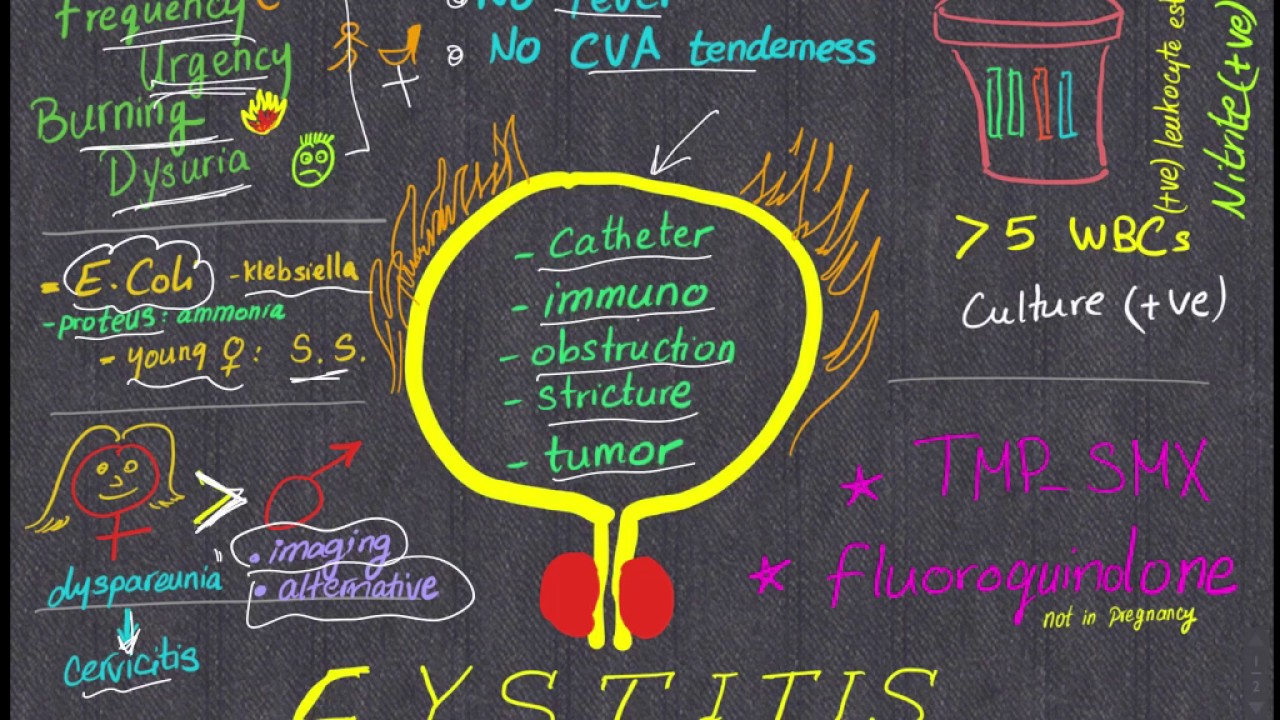 Frequency
Urgency
Burning
Dysuria
No fever
No CVA tenderness
(+ve) leukocyte est
Nitrite (+ve)
> 5 WBCs
Culture (+ve)
= E. Coli - klebsiella
- proteus: ammonia
= young ♀: S.S.
- Catheter
- immuno
- obstruction
- stricture
- tumor
>
dyspareunia
Cervicitis
• imaging
• alternative
* TMP_SMX
* fluoroquinolone
not in Pregnancy
CYSTITIS